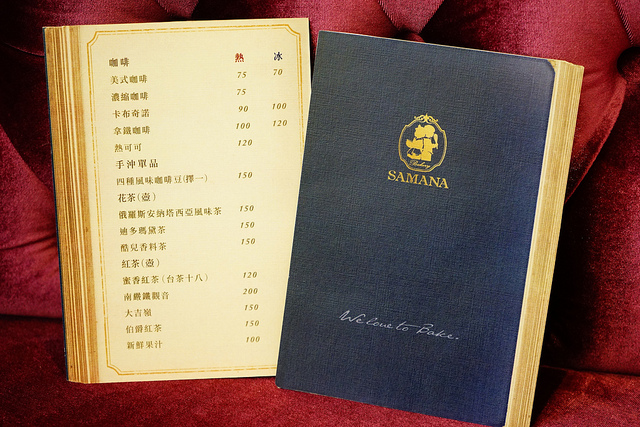 咖啡 熱 冰
美式咖啡 75 70
濃縮咖啡 75
卡布奇諾 90 100
拿鐵咖啡 100 120
熱可可 120
手沖單品
四種風味咖啡豆(擇一) 150
花茶(壺)
俄羅斯安納塔西亞風味茶 150
迪多瑪黛茶 150
酷兒香料茶 150
紅茶(壺)
蜜香紅茶(台茶十八) 120
南巖鐵觀音 200
大吉嶺 150
伯爵紅茶 150
新鮮果汁 100
Bakery
SAMANA
We love to Bake.